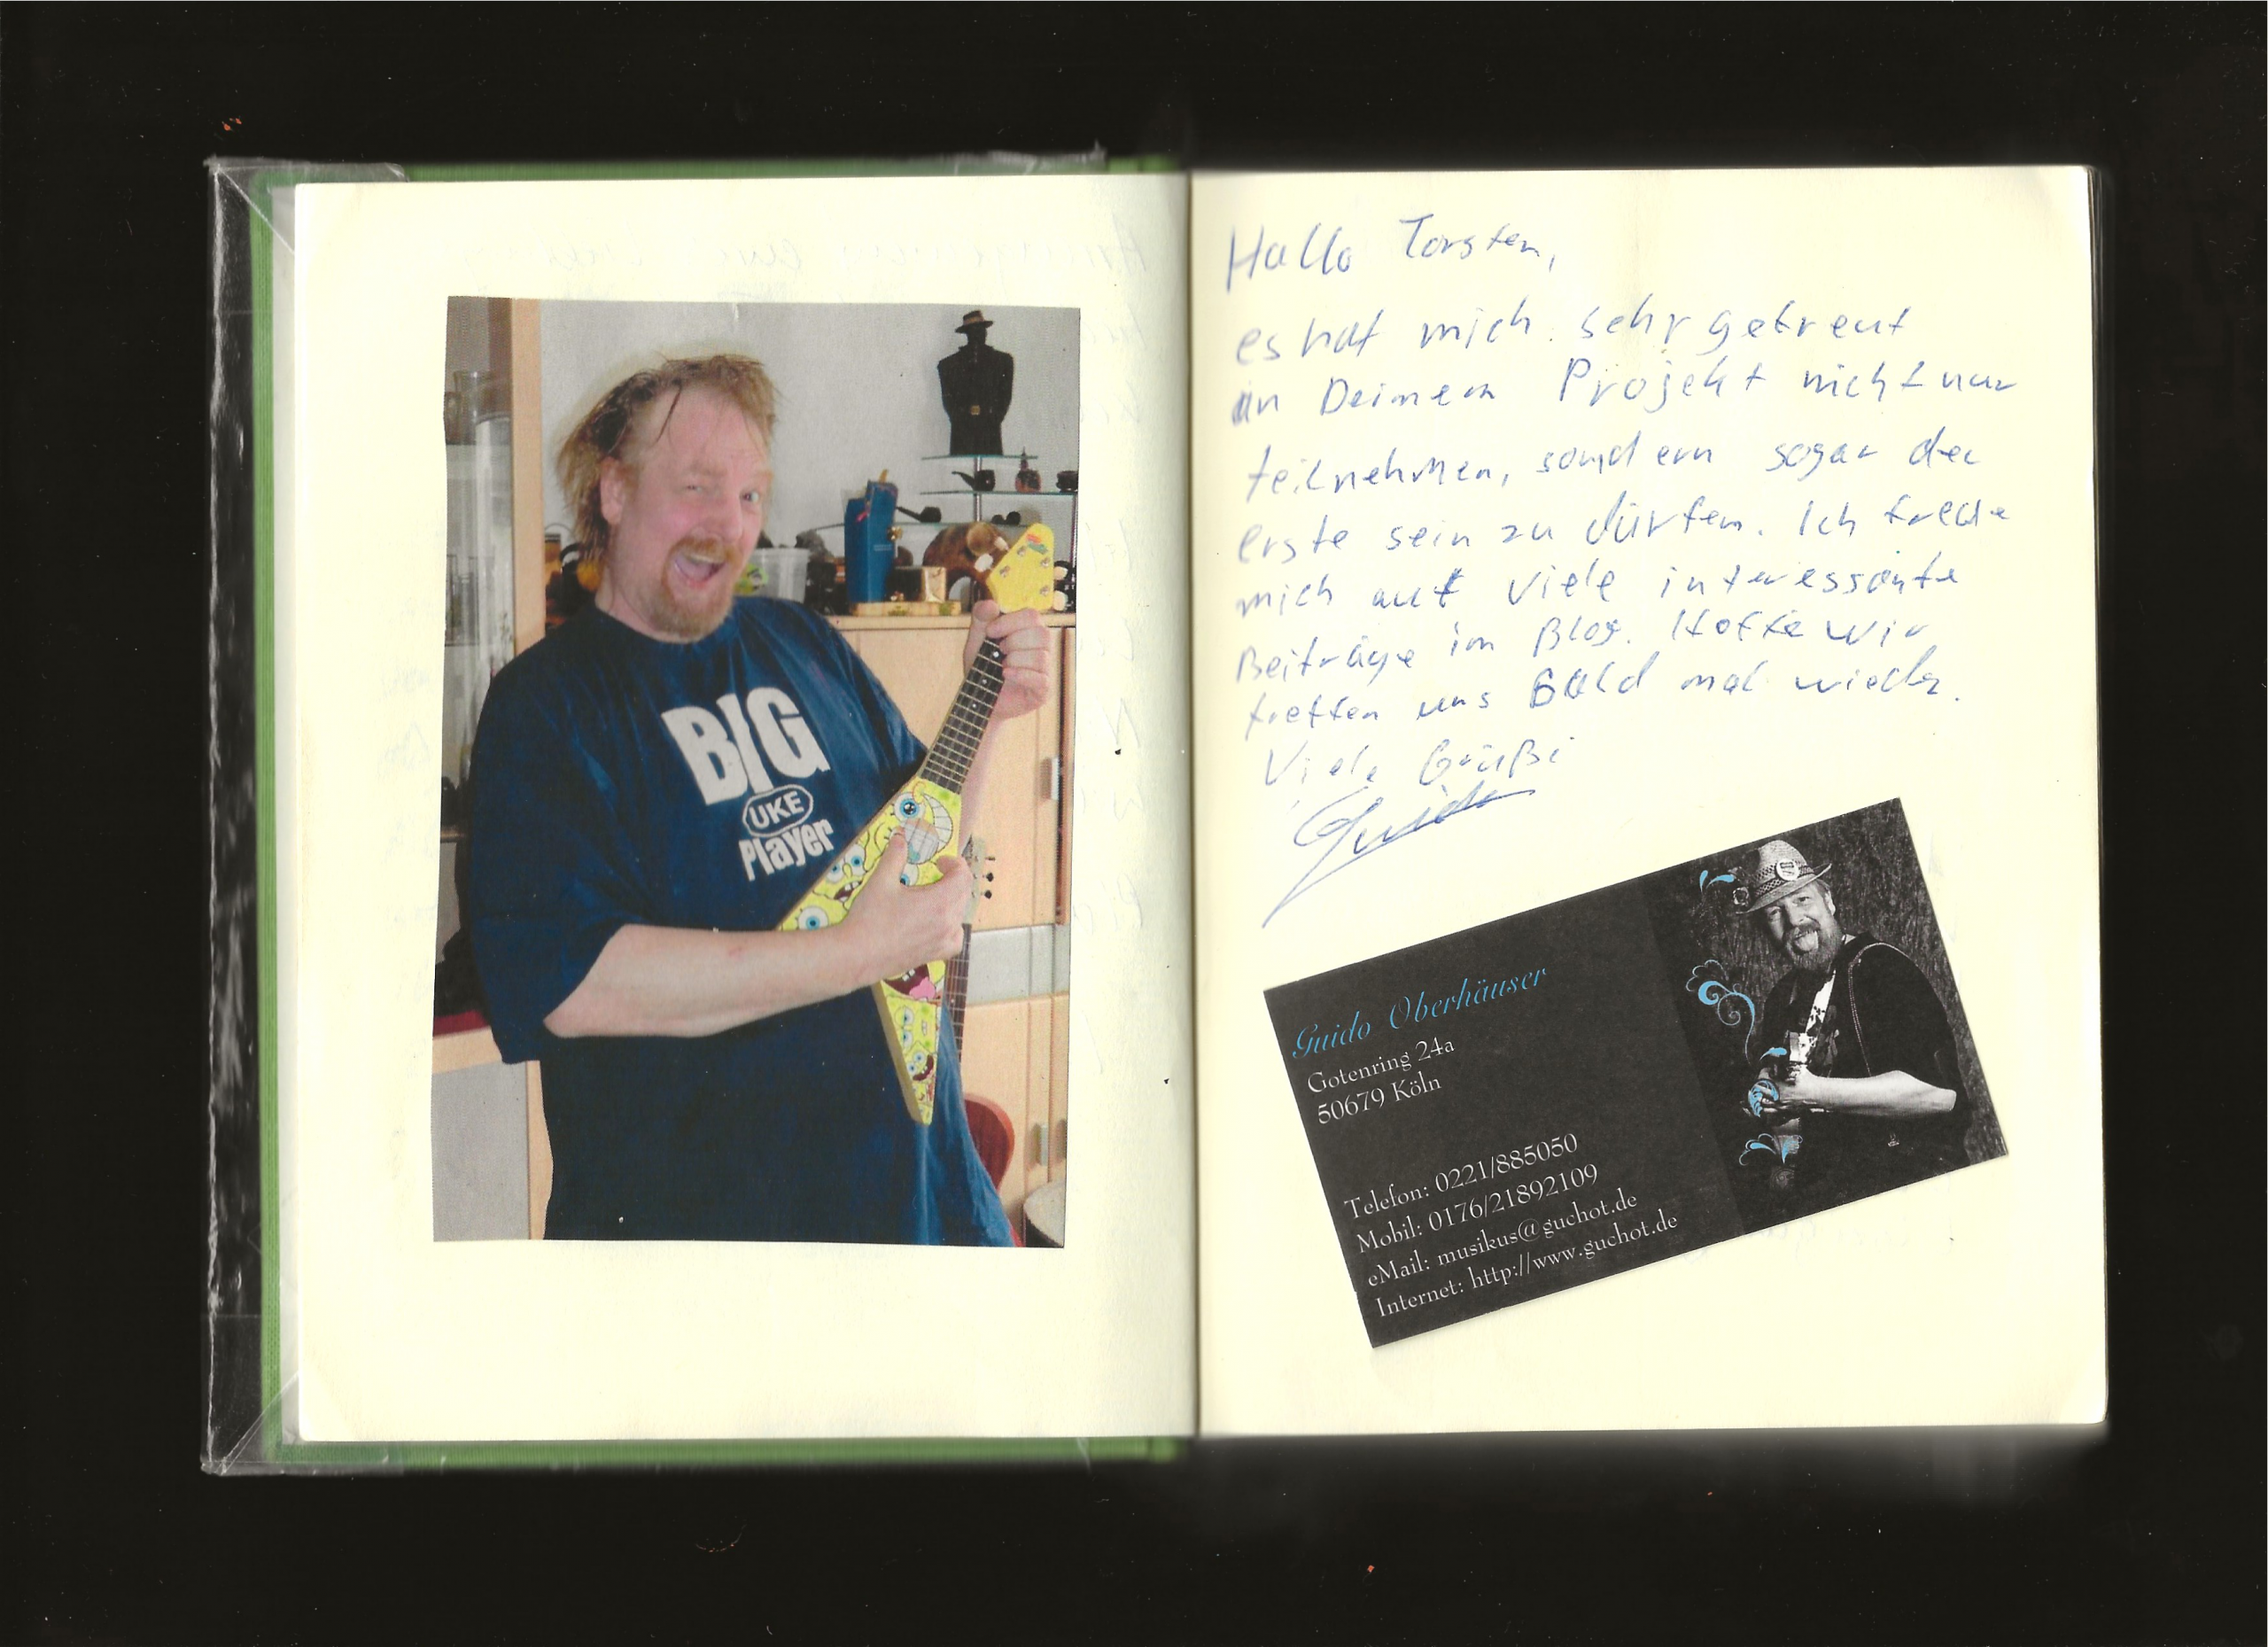 BIG
UKE
Player
Hallo Torsten,
es hat mich sehr gefreut
an Deinem Projekt nicht nur
teilnehmen, sondern sogar der
erste sein zu dürfen. Ich freue
mich auf viele interessante
Beiträge im Blog. Hoffe wir
treffen uns Bald mal wieder.
Viele Grüße
Guido
Guido Oberhäuser
Gotenring 24a
50679 Köln
Telefon: 0221/885050
Mobil: 0176/21892109
eMail: musikus@guchot.de
Internet: http://www.guchot.de